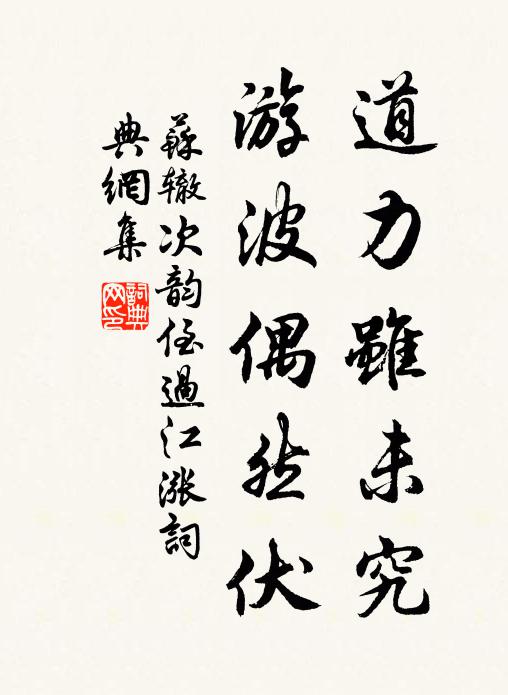 道力雖未究
游波偶然伏
蘇轍次韵侄過江漲詞
典網集
詞典網印